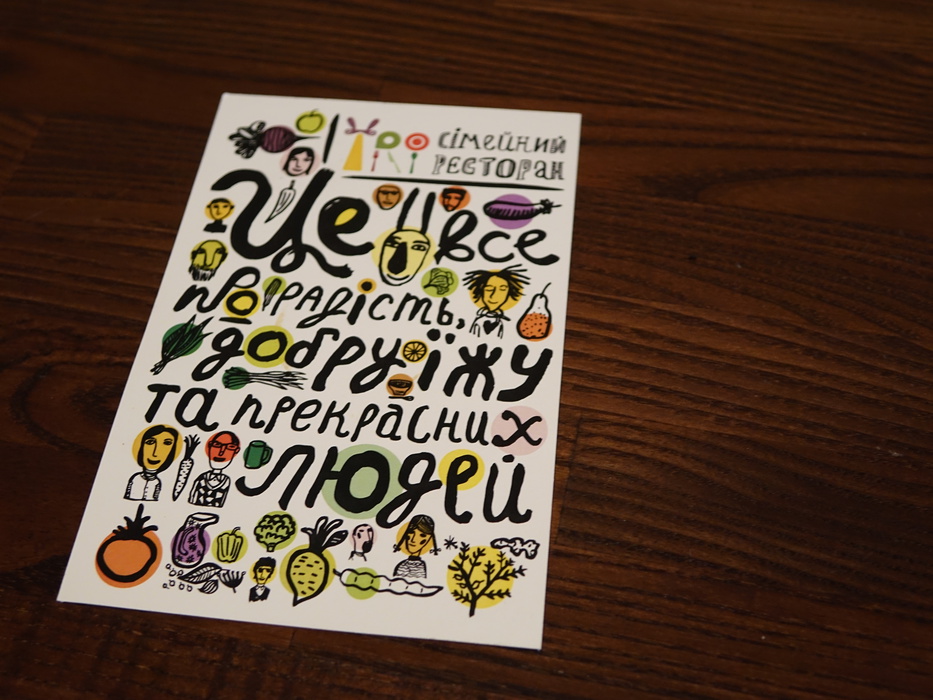 сімейний
ресторан
Це все
про радість,
добру їжу
та прекрасних
людей